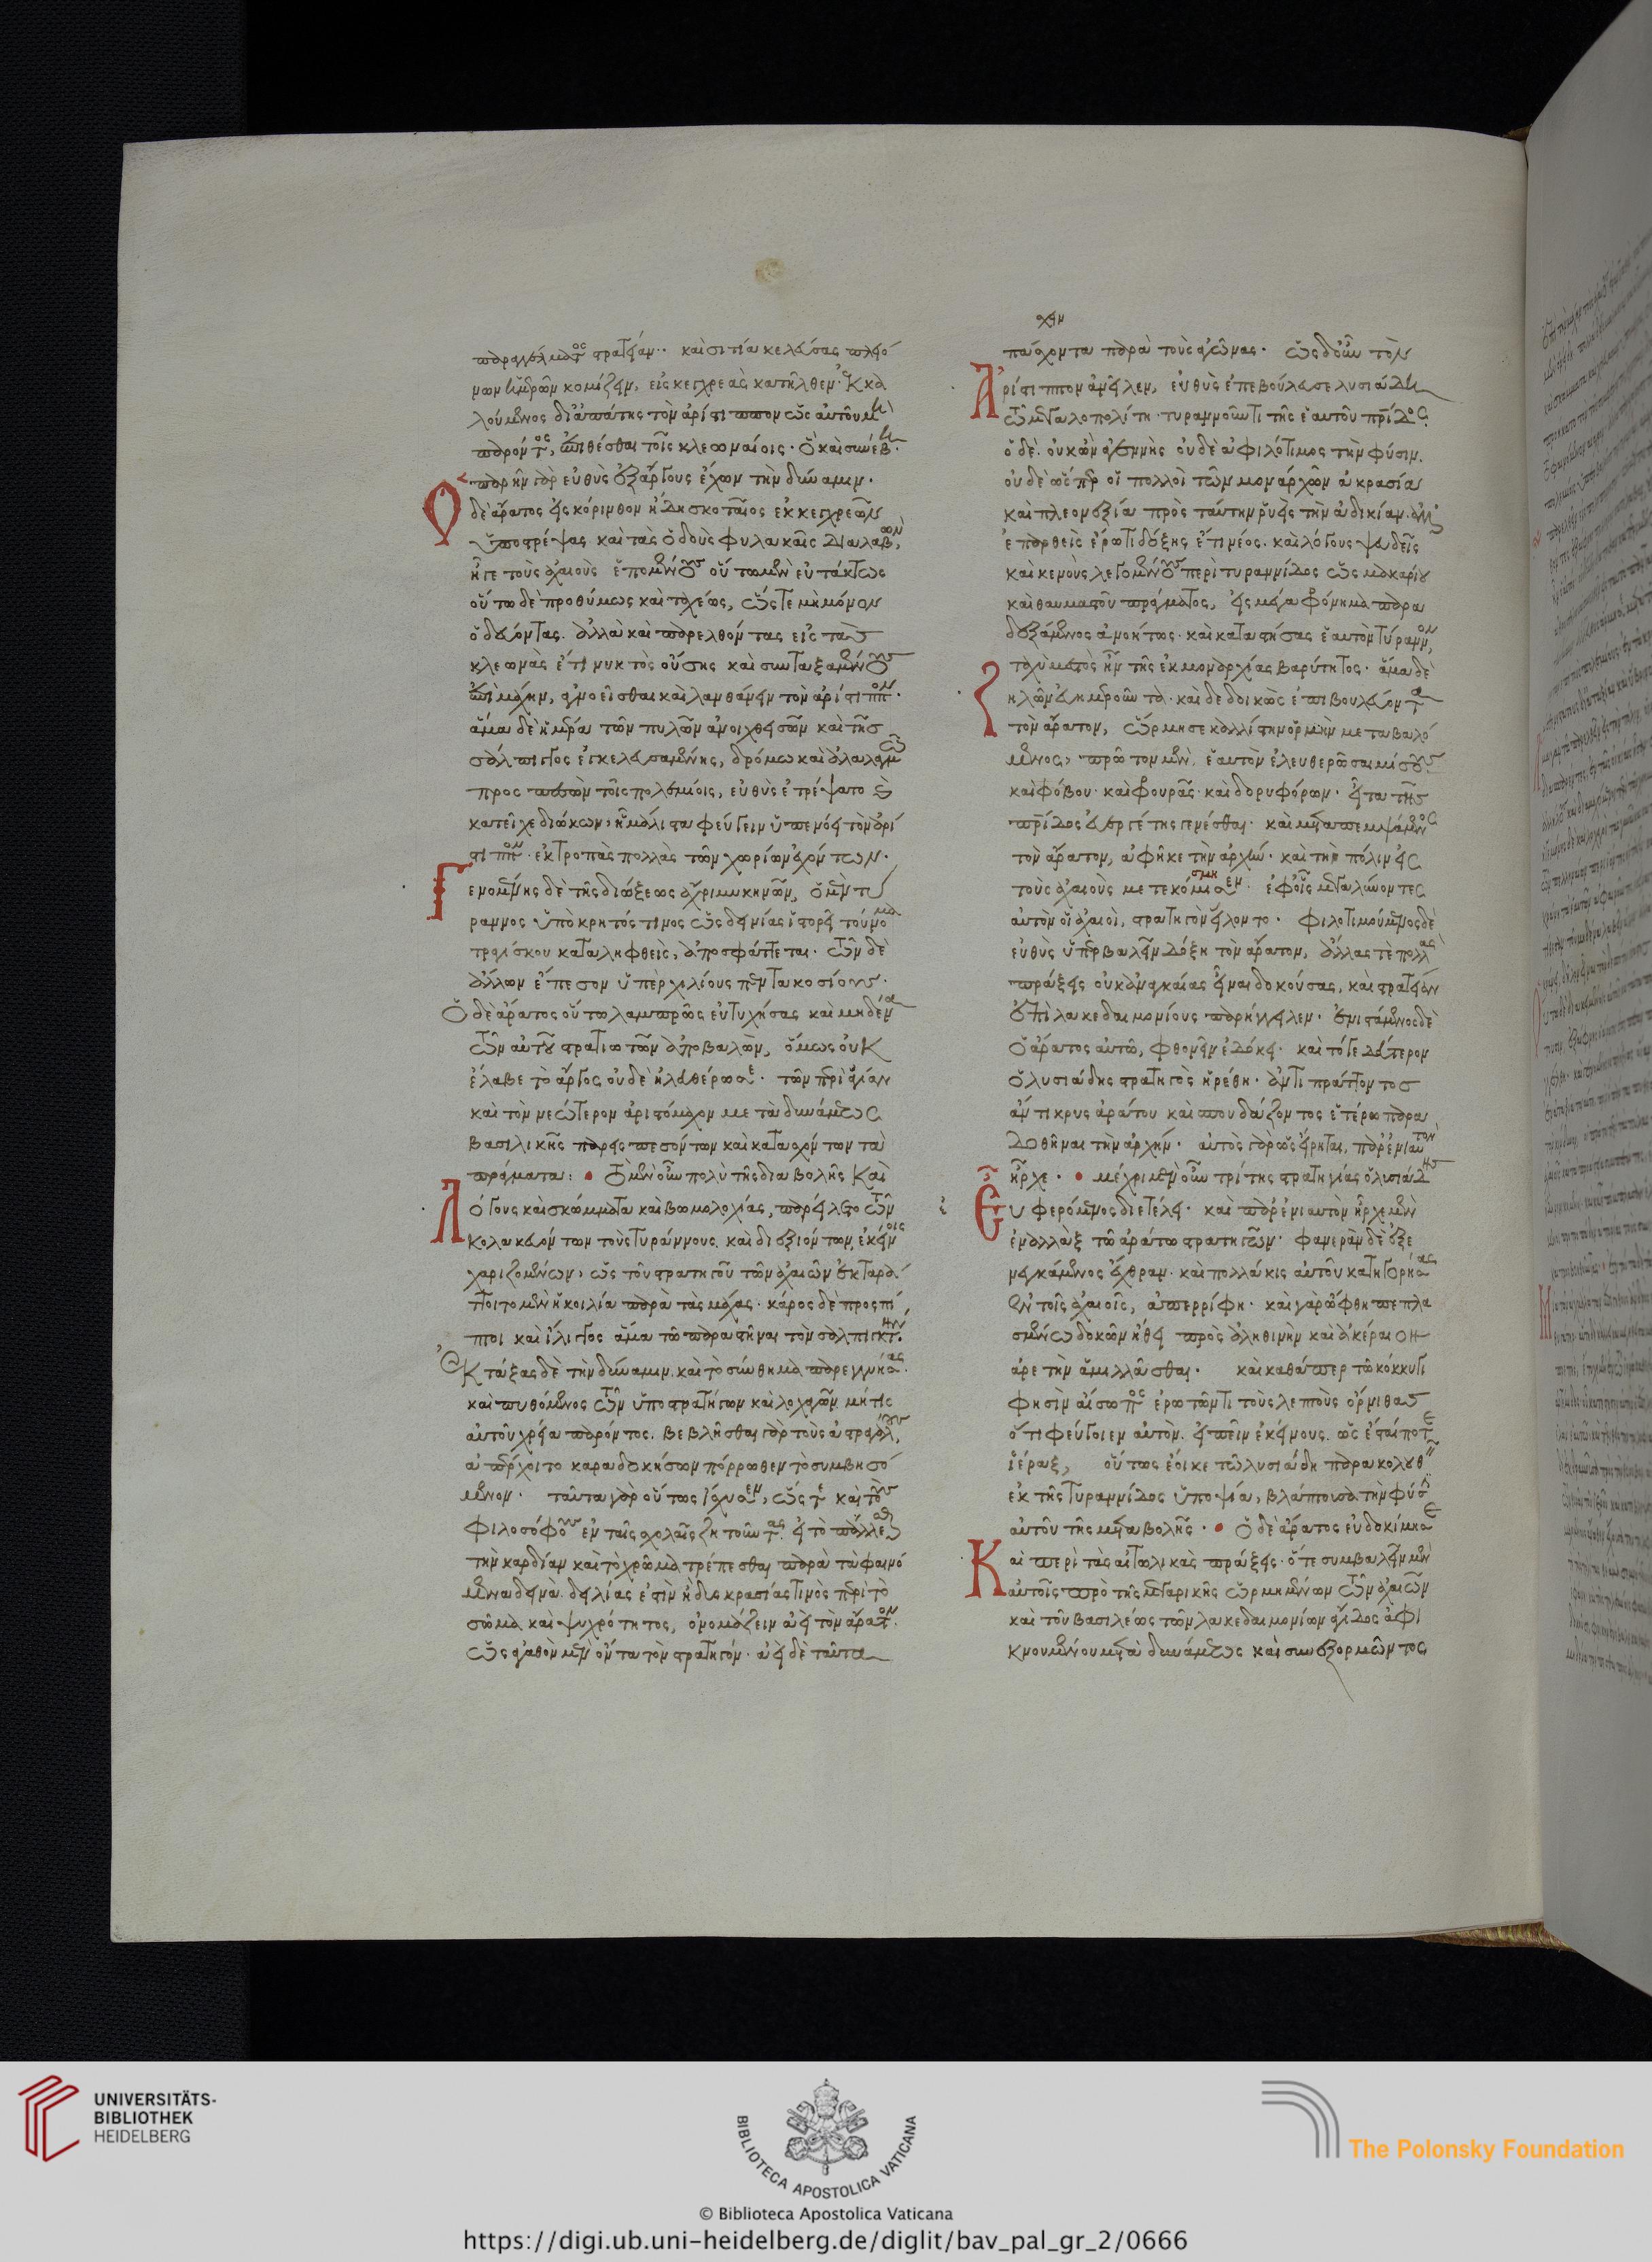 παραγγείλματος στρατείαν· καὶ σιτία κελεύσας πλειό
νων ἡμερῶν κομίζειν, εἰς κεγχρεὰς κατῆλθεν· ἐκκα
λούμενος δι' ἀπάτης τὸν ἀρίστιππον ὡς αὐτοῦ μὴ
παρόντος, ἐπιθέσθαι τοῖς κλεωναίοις· ὃ καὶ συνέβη·
παρῆν γὰρ εὐθὺς ἐξ ἄργους ἔχων τὴν δύναμιν·
Ὁ δὲ ἄρατος εἰς κόρινθον ἤδη σκοταῖος ἐκ κεγχρεῶν
ὑποστρέψας καὶ τὰς ὁδοὺς φυλακαῖς διαλαβὼν,
ἦγε τοὺς ἀχαιοὺς ἑπομένους οὕτω μὲν εὐτάκτως
οὕτω δὲ προθύμως καὶ ταχέως, ὥστε μὴ μόνον
ὁδεύοντας. ἀλλὰ καὶ παρελθόντας εἰς τὰς
κλεωνὰς ἔτι νυκτὸς οὔσης καὶ συνταξαμένους
ἐπὶ μάχην, ἀγνοεῖσθαι καὶ λανθάνειν τὸν ἀρίστιππον·
ἅμα δὲ ἡμέρα τῶν πυλῶν ἀνοιχθεισῶν καὶ τῆς
σάλπιγγος ἐγκελευσαμένης, δρόμω καὶ ἀλαλαγμῶ
προσπεσὼν τοῖς πολεμίοις, εὐθὺς ἐτρέψατο καὶ
κατεῖχε διώκων, ἧ μάλιστα φεύγειν ὑπενόει τὸν ἀρί
στιππον· ἐκτροπὰς πολλὰς τῶν χωρίων ἐχόντων·
Γενομένης δὲ τῆς διώξεως ἄχρι μυκηνῶν, ὁ μὲν τύ
ραννος ὑπὸ κρητός τινος ὡς δεινίας ἱστορεῖ τοὔνομα
τραγίσκου καταληφθεὶς, ἀποσφάττεται· τῶν δὲ
ἄλλων ἔπεσον ὑπὲρ χιλίους πεντακοσίους·
Ὁ δὲ ἄρατος οὕτω λαμπρῶς εὐτυχήσας καὶ μηδένα
τῶν αὐτοῦ στρατιωτῶν ἀποβαλὼν, ὅμως οὐκ
ἔλαβε τὸ ἄργος οὐδὲ ἠλευθέρωσε· τῶν περὶ ἀγίαν
καὶ τὸν νεώτερον ἀριστόμαχον μετὰ δυνάμεως
βασιλικῆς παρεισπεσόντων καὶ κατασχόντων τὰ
πράγματα: • Τὸ μὲν οὖν πολὺ τῆς διαβολῆς καὶ
Λόγους καὶ σκώμματα καὶ βωμολοχίας, παρείλετο τῶν
κολακευόντων τοὺς τυράννους, καὶ διεξιόντων, ἐκείνοις
χαριζομένων, ὡς τοῦ στρατηγοῦ τῶν ἀχαιῶν ἐκταράτ
τοιτο μὲν ἡ κοιλία παρὰ τὰς μάχας· κάρος δὲ προσπί
πτοι καὶ ἴλιγγος ἅμα τῶ παραστῆναι τὸν σαλπιγκτήν·
Ἐκτάξας δὲ τὴν δύναμιν, καὶ τὸ σύνθημα παρεγγυήσας·
καὶ πυθόμενος τῶν ὑποστρατήγων καὶ λοχαγῶν μή τις
αὐτοῦ χρεία παρόντος. βεβλῆσθαι γὰρ τοὺς ἀστραγάλους,
ἀπέρχοιτο καραδοκήσων πόρρωθεν τὸ συμβησό
μενον· ταῦτα γὰρ οὕτως ἴσχυσεν, ὥστε καὶ τοὺς
φιλοσόφους ἐν ταῖς σχολαῖς ζητοῦντας, εἰ τὸ πάλλεσθαι
τὴν καρδίαν καὶ τὸ χρῶμα τρέπεσθαι παρὰ τὰ φαινό
μενα δεινὰ. δειλίας ἐστὶν ἢ δυσκρασίας τινὸς περὶ τὸ
σῶμα καὶ ψυχρότητος, ὀνομάζειν ἀεὶ τὸν ἄρατον·
ὡς ἀγαθὸν μὲν ὄντα τὸν στρατηγόν· ἀεὶ δὲ ταῦτα
χειν
πάσχοντα παρὰ τοὺς ἀγῶνας· ὡς δ' οὖν τὸν
Ἀρίστιππον ἀνεῖλεν, εὐθὺς ἐπεβούλευσε λυσιάδη
τῶ μεγαλοπολίτη· τυραννοῦντι τῆς ἑαυτοῦ πατρίδος
ὁ δὲ. οὐκ ὢν ἀγεννὴς οὐδὲ ἀφιλότιμος τὴν φύσιν.
οὐδὲ ὥσπερ οἱ πολλοὶ τῶν μονάρχων ἀκρασία
καὶ πλεονεξία πρὸς ταύτην ῥυεὶς τὴν ἀδικίαν. ἀλλ'
ἐπαρθεὶς ἔρωτι δόξης ἔτι νέος. καὶ λόγους ψευδεῖς
καὶ κενοὺς λεγομένους περὶ τυραννίδος ὡς μακαρίου
καὶ θαυμαστοῦ πράγματος, εἰς μέγα φρόνημα παρα
δεξάμενος ἀνοήτως· καὶ καταστήσας ἑαυτὸν τύραννον,
ταχὺ μεστὸς ἦν τῆς ἐκ μοναρχίας βαρύτητος· ἅμα δὲ
ζηλῶν εὐημεροῦντα· καὶ δεδοικὼς ἐπιβουλεύοντα
τὸν ἄρατον, ὥρμησε καλλίστην ὁρμὴν μεταβαλό
μενος, πρῶτον μὲν ἑαυτὸν ἐλευθερῶσαι μίσους
καὶ φόβου· καὶ φρουρᾶς· καὶ δορυφόρων· εἶτα τῆς
πατρίδος εὐεργέτης γενέσθαι· καὶ μεταπεμψάμενος
τὸν ἄρατον, ἀφῆκε τὴν ἀρχὴν· καὶ τὴν πόλιν εἰς
τοὺς ἀχαιοὺς μετεκόμισεν· ἐφ' οἷς μεγαλύνοντες
αὐτὸν οἱ ἀχαιοὶ, στρατηγὸν εἵλοντο· φιλοτιμούμενος δὲ
εὐθὺς ὑπερβαλεῖν δόξη τὸν ἄρατον, ἄλλας τὲ πολλὰς
πράξεις οὐκ ἀναγκαίας εἶναι δοκούσας, καὶ στρατείαν
ἐπὶ λακεδαιμονίους παρήγγειλεν· ἐνιστάμενος δὲ
ὁ ἄρατος αὐτῶ, φθονεῖν ἐδόκει· καὶ τό γε δεύτερον
ὁ λυσιάδης στρατηγὸς ἡρέθη· ἀντιπράττοντος
ἄντικρυς ἀράτου καὶ σπουδάζοντος ἑτέρω παρα
δοθῆναι τὴν ἀρχήν· αὐτὸς γὰρ ὡς εἴρηται, παρ' ἐνιαυτὸν
ἦρχε· • μέχρι μὲν οὖν τρίτης στρατηγίας ὁ λυσιάδης
Εὖ φερόμενος διετέλει· καὶ παρ' ἐνιαυτὸν ἦρχε μὲν
ἐναλλὰξ τῶ ἀράτω στρατηγῶν· φανερὰν δὲ ἐξε
νεγκάμενος ἔχθραν· καὶ πολλάκις αὐτοῦ κατηγορήσας
ἐν τοῖς ἀχαιοῖς, ἀπερρίφη· καὶ γὰρ ὤφθη πεπλα
σμένω δοκῶν ἤθει πρὸς ἀληθινὴν καὶ ἀκέραιον
ἀρετὴν ἁμιλλᾶσθαι· καὶ καθάπερ τῶ κόκκυγι
φησὶν αἴσωπος ἐρωτῶντι τοὺς λεπτοὺς ὄρνιθας
ὅτι φεύγοιεν αὐτὸν. εἰπεῖν ἐκείνους. ὡς ἔσται ποτὲ
ἱέραξ, οὕτως ἔοικε τῶ λυσιάδη παρακολουθεῖν
ἐκ τῆς τυραννίδος ὑποψία, βλάπτουσα τὴν φύσιν
αὐτοῦ τῆς μεταβολῆς· • Ὁ δὲ ἄρατος εὐδοκίμησε
Καὶ περὶ τὰς αἰτωλικὰς πράξεις· ὅτε συμβαλεῖν μὲν
αὐτοῖς πρὸ τῆς μεγαρικῆς ὡρμημένων τῶν ἀχαιῶν
καὶ τοῦ βασιλέως τῶν λακεδαιμονίων ἄγιδος ἀφι
κνουμένου μετὰ δυνάμεως καὶ συνεξορμῶντος
UNIVERSITÄTS-
BIBLIOTHEK
HEIDELBERG
BIBLIOTECA APOSTOLICA VATICANA
The Polonsky Foundation
© Biblioteca Apostolica Vaticana
https://digi.ub.uni-heidelberg.de/diglit/bav_pal_gr_2/0666